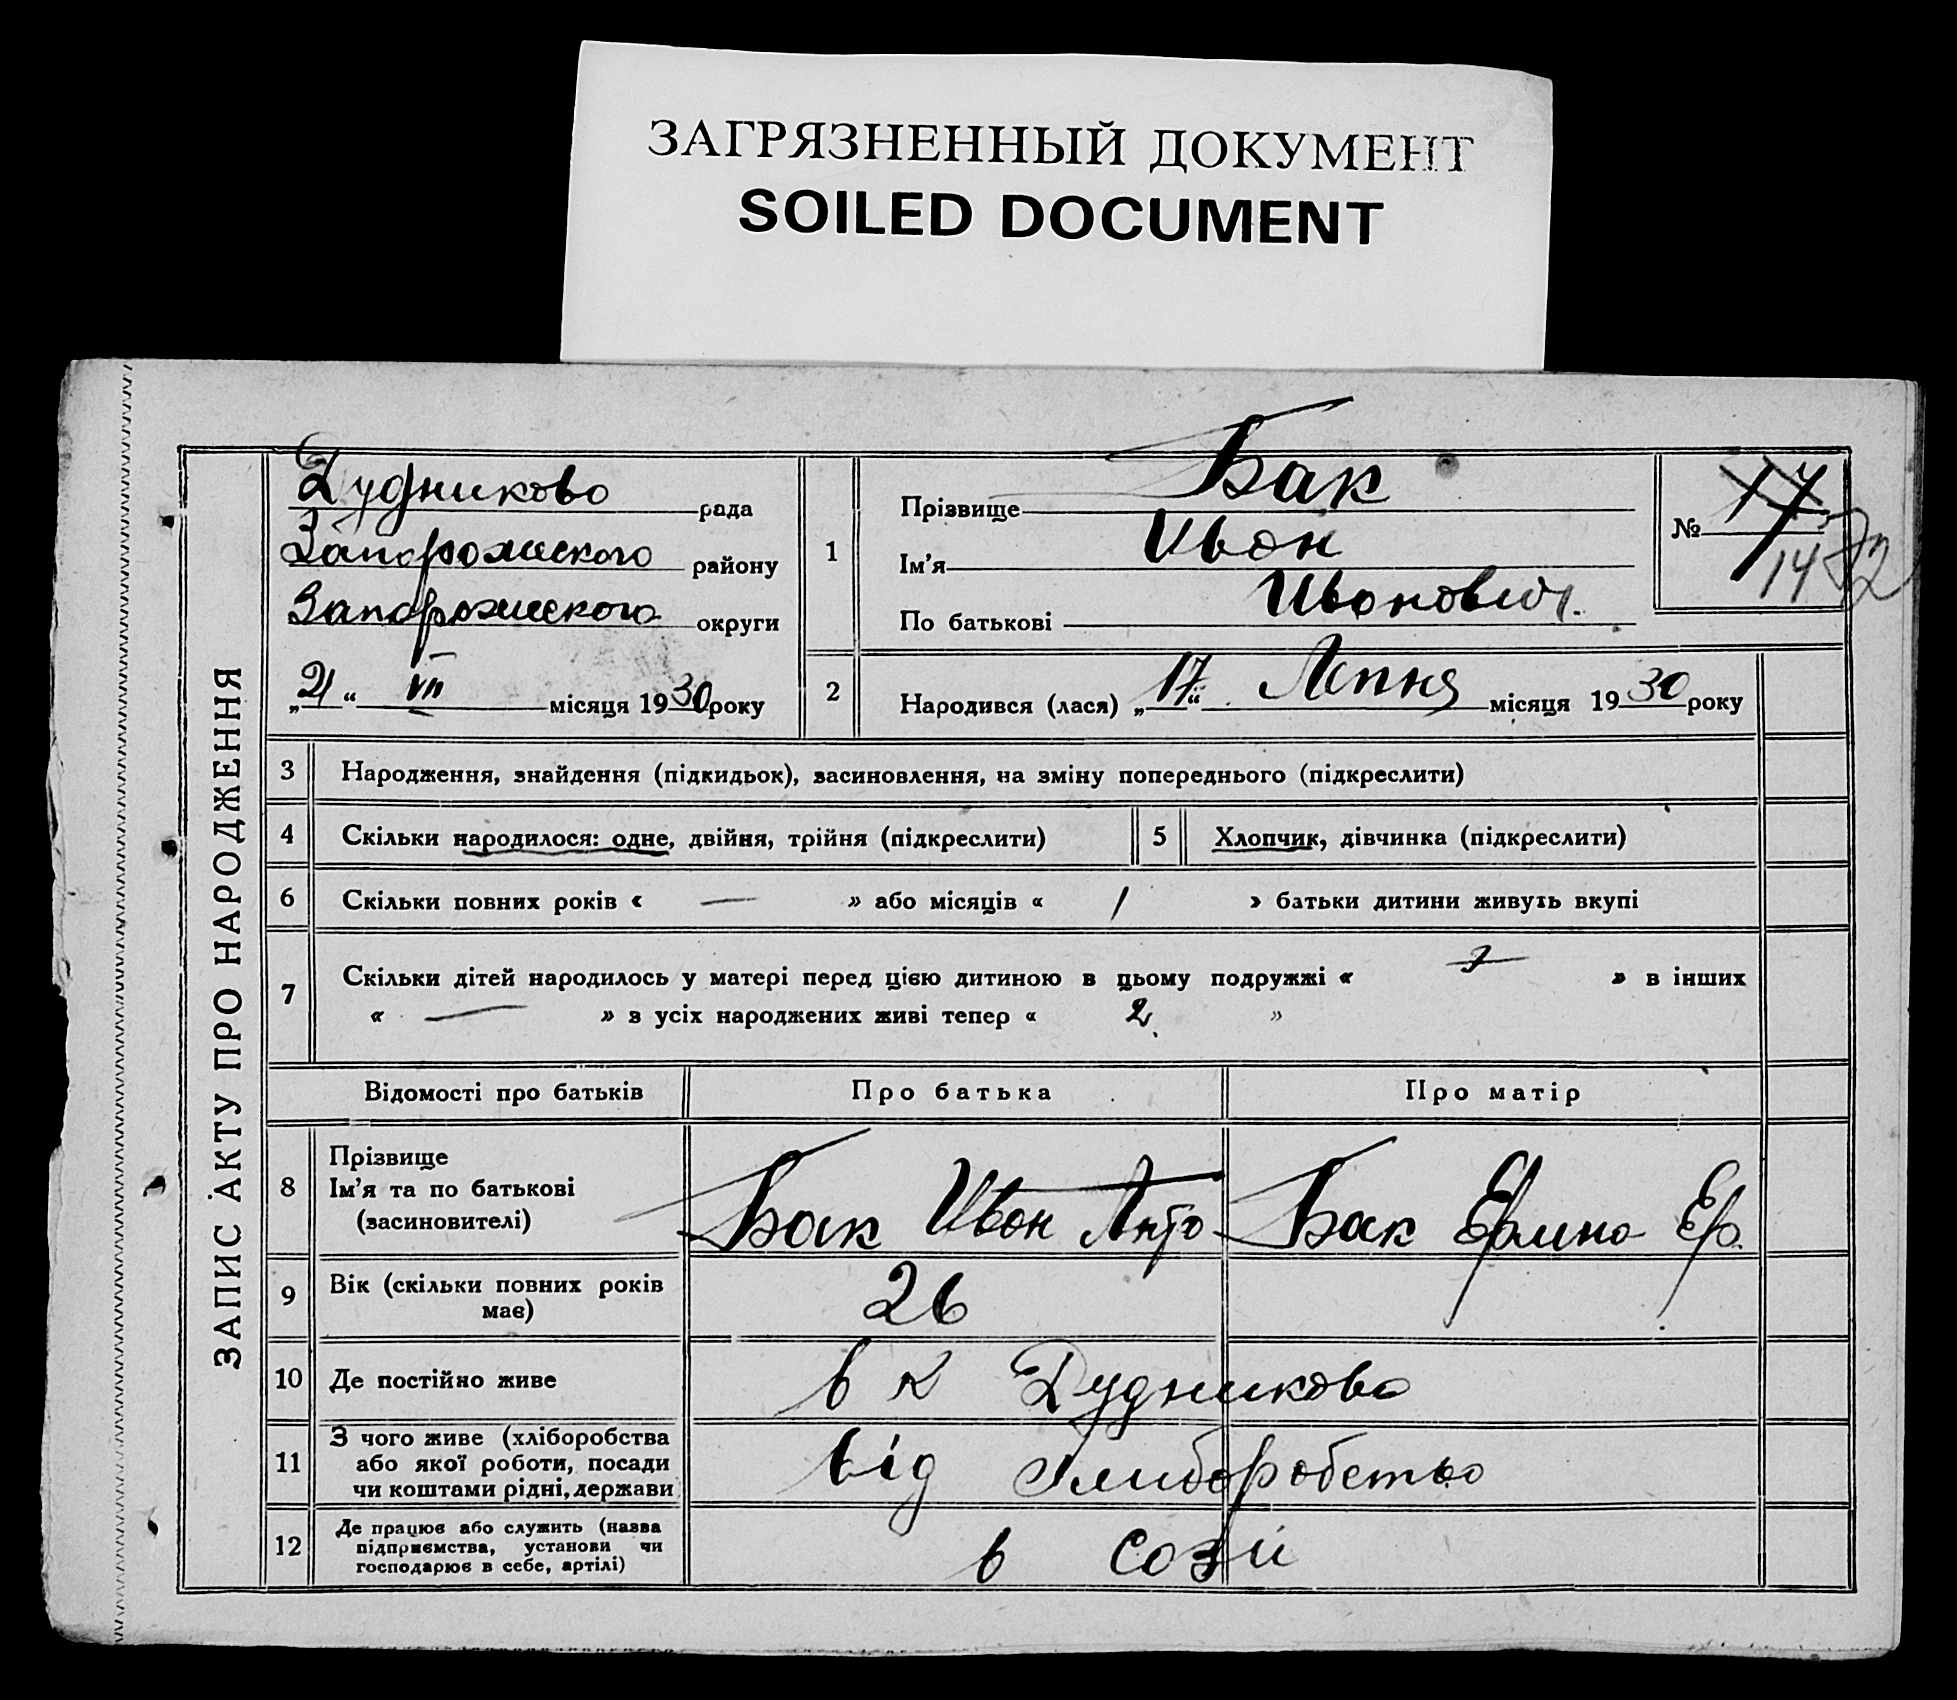 ЗАГРЯЗНЕННЫЙ ДОКУМЕНТ
SOILED DOCUMENT
ЗАПИС АКТУ ПРО НАРОДЖЕННЯ
Дудниково рада
Запорожского району
Запорожского округи
„21“ VII місяця 1930 року
1
Прізвище Бак
Ім'я Ивон
По батькові Ивонович.
№ 17
14
2 Народився (лася) „17“ Липня місяця 1930 року
3 Народження, знайдення (підкидьок), засиновлення, на зміну попереднього (підкреслити)
4 Скільки народилося: одне, двійня, трійня (підкреслити) 5 Хлопчик, дівчинка (підкреслити)
6 Скільки повних років « — » або місяців « / » батьки дитини живуть вкупі
7 Скільки дітей народилось у матері перед цією дитиною в цьому подружжі « » в інших
« — » з усіх народжених живі тепер « 2 »
Відомості про батьків Про батька Про матір
8 Прізвище
Ім'я та по батькові
(засиновителі)
Бак Ивон Анто Бак Ер.
9 Вік (скільки повних років
має) 26
10 Де постійно живе в к Дудниково
11 З чого живе (хліборобства
або якої роботи, посади
чи коштами рідні, держави
від хлиборобство
12 Де працює або служить (назва
підприємства, установи чи
господарює в себе, артілі)
в созй